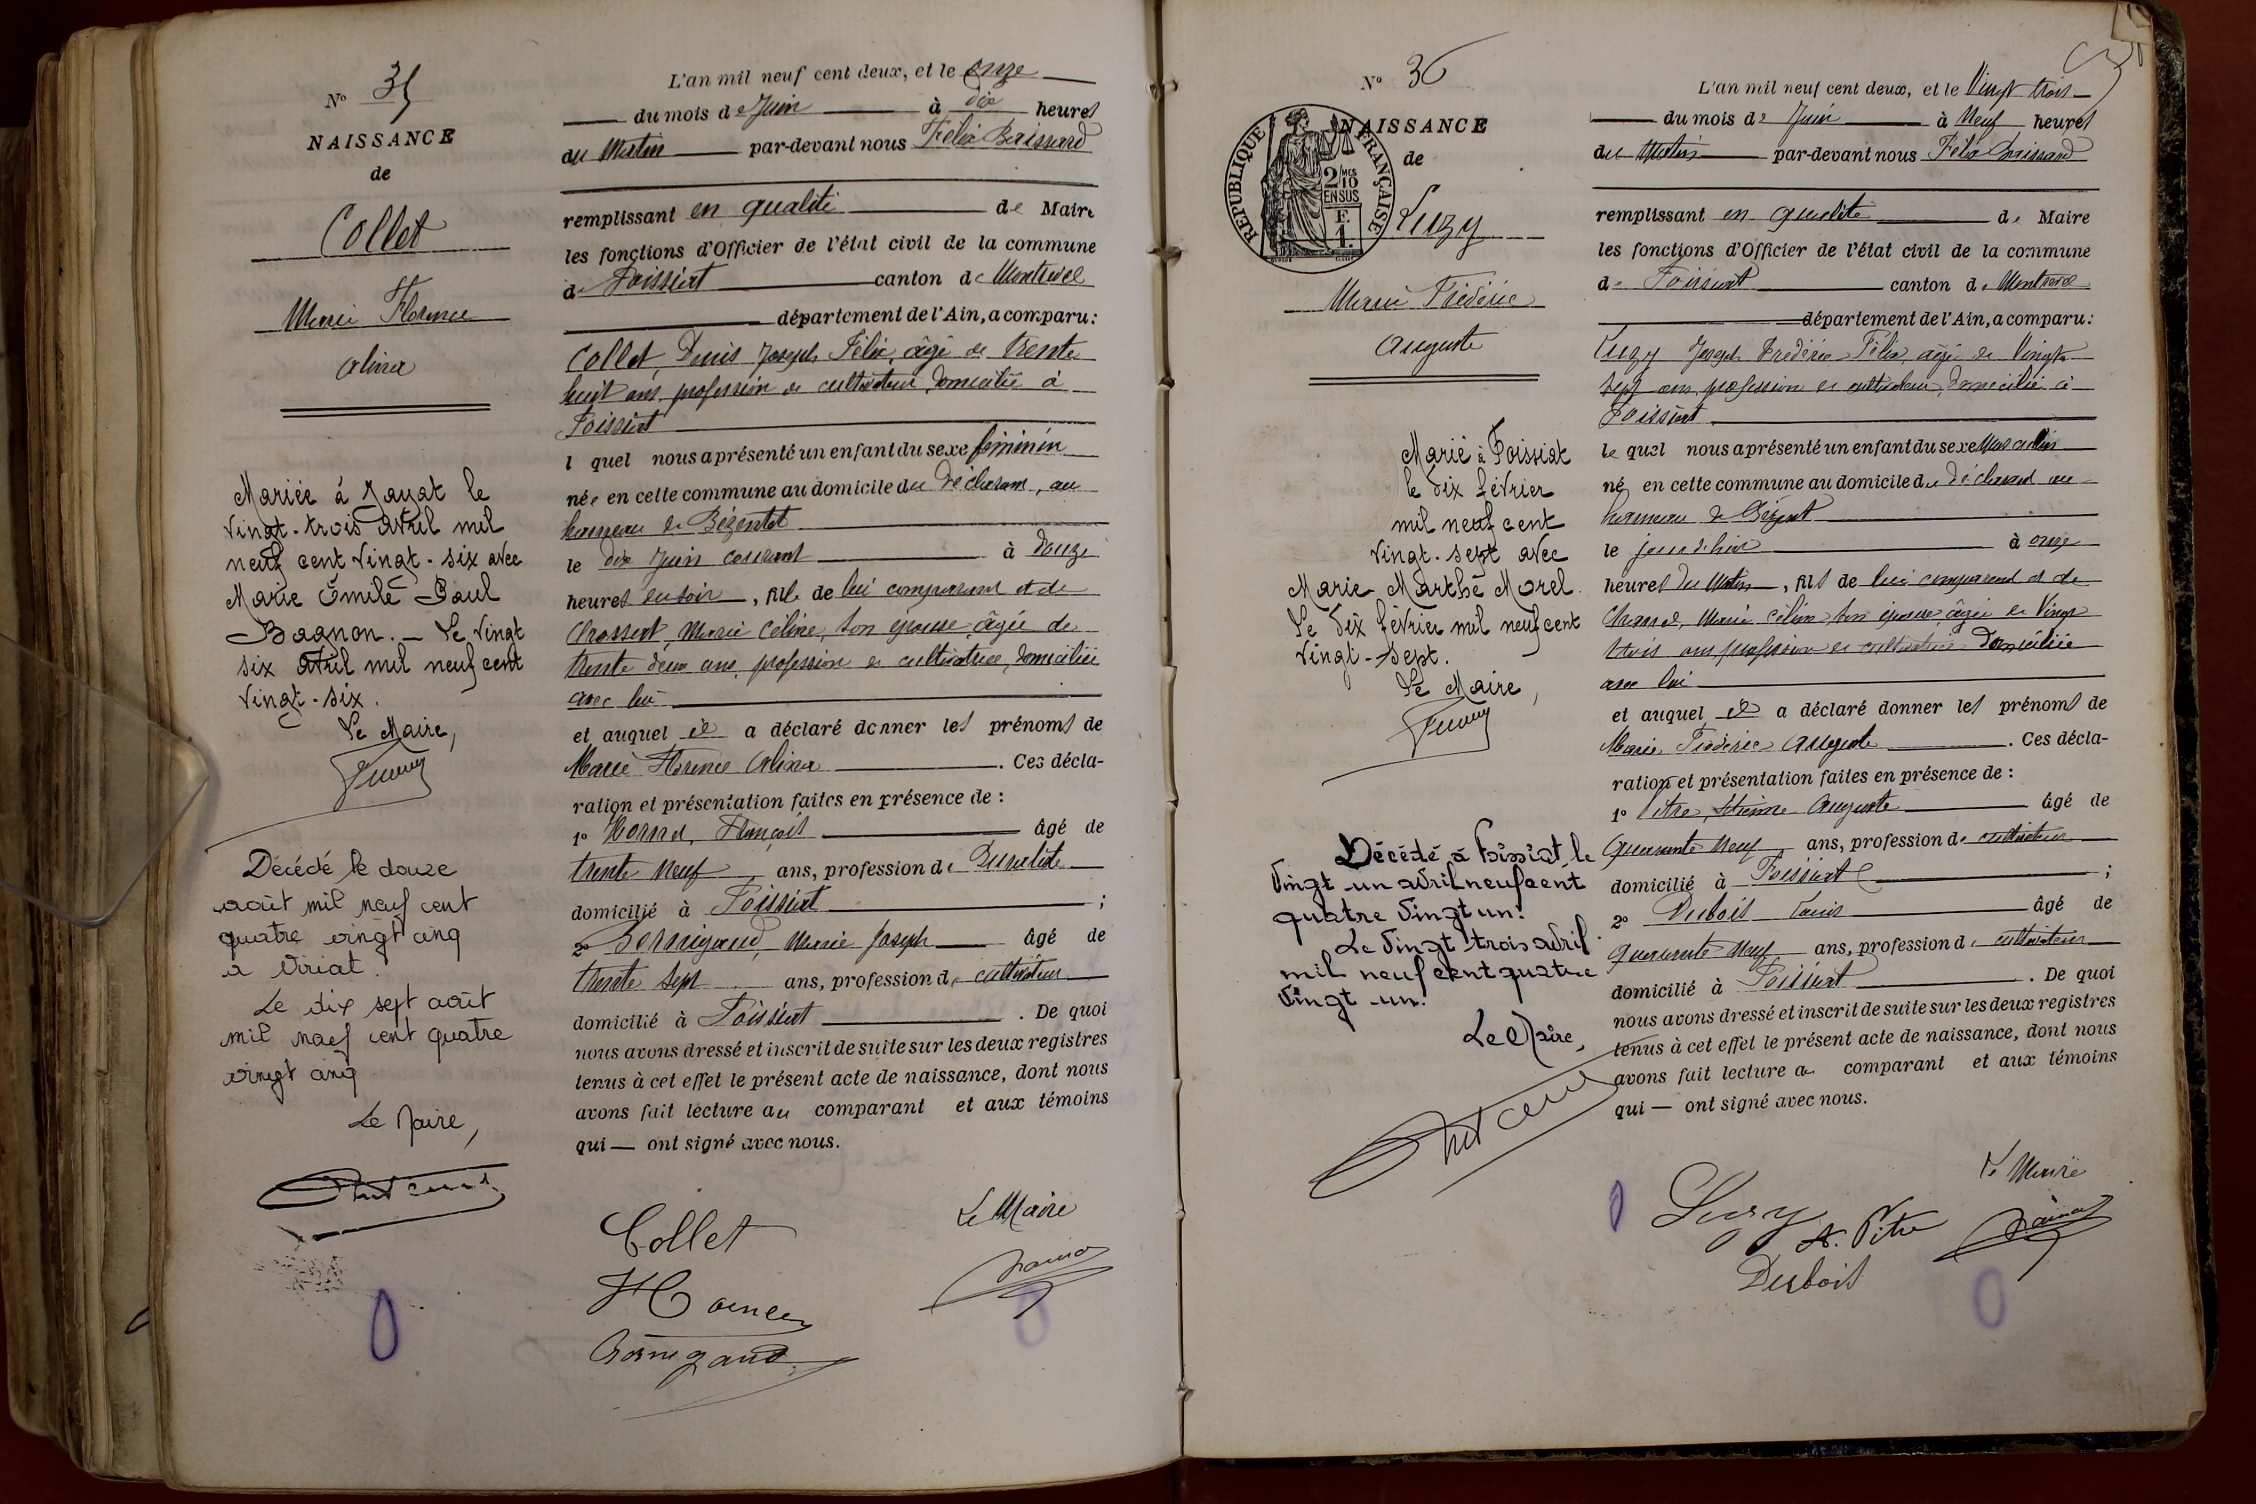 N° 35
NAISSANCE
de
Collet
Marie Florence
Alina
Mariée à Jayat le
vingt-trois avril mil
neuf cent vingt-six avec
Marie Émile Paul
Bagnon. — Le vingt
six avril mil neuf cent
vingt-six.
Le Maire,
Décédé le douze
août mil neuf cent
quatre vingt cinq
à Viriat.
Le dix sept août
mil neuf cent quatre
vingt cinq
Le Maire,
L'an mil neuf cent deux, et le onze
du mois de Juin à dix heures
du Matin par-devant nous Félix
remplissant en qualité de Maire
les fonctions d'Officier de l'état civil de la commune
de Foissiat canton de Montrevel
département de l'Ain, a comparu:
Collet, Denis Joseph Félix, âgé de trente
huit ans, profession de cultivateur, domicilié à
Foissiat
l quel nous a présenté un enfant du sexe féminin
née en cette commune au domicile du déclarant, au
hameau de
le dix Juin courant à douze
heures du soir, fille de lui comparant et de
Marie Céline, son épouse, âgée de
trente deux ans, profession de cultivatrice, domiciliée
avec lui
et auquel il a déclaré donner les prénoms de
Marie Florence Alina. Ces décla-
ration et présentation faites en présence de :
1° François âgé de
trente neuf ans, profession de
domicilié à Foissiat ;
2° Marie Joseph âgé de
trente sept ans, profession de cultivateur
domicilié à Foissiat. De quoi
nous avons dressé et inscrit de suite sur les deux registres
tenus à cet effet le présent acte de naissance, dont nous
avons fait lecture au comparant et aux témoins
qui — ont signé avec nous.
Collet
Le Maire
N° 36
RÉPUBLIQUE FRANÇAISE
2/10 MES
EN SUS
F.
1.
NAISSANCE
de
Luzy
Marie Frédéric
Auguste
Marié à Foissiat
le dix février
mil neuf cent
vingt-sept avec
Marie Marthe Morel.
Le dix février mil neuf cent
vingt-sept.
Le Maire,
Décédé à Foissiat le
vingt-un avril neuf cent
quatre vingt un.
Le vingt trois avril
mil neuf cent quatre
vingt-un.
Le Maire,
L'an mil neuf cent deux, et le Vingt trois
du mois de Juin à Neuf heures
du Matin par-devant nous Félix
remplissant en qualité de Maire
les fonctions d'Officier de l'état civil de la commune
de Foissiat canton de Montrevel
département de l'Ain, a comparu:
Luzy Joseph Frédéric Félix, âgé de Vingt
sept ans, profession de cultivateur, domicilié à
Foissiat
le quel nous a présenté un enfant du sexe Masculin
né en cette commune au domicile du déclarant au
hameau de
le jour d'hier à onze
heures du Matin, fils de lui comparant et de
Marie Céline, son épouse âgée de Vingt
trois ans profession de cultivatrice domiciliée
avec lui
et auquel il a déclaré donner les prénoms de
Marie Frédéric Auguste. Ces décla-
ration et présentation faites en présence de :
1° Pitre, Auguste âgé de
Quarante neuf ans, profession de cultivateur
domicilié à Foissiat ;
2° Dubois Louis âgé de
quarante neuf ans, profession de cultivateur
domicilié à Foissiat. De quoi
nous avons dressé et inscrit de suite sur les deux registres
tenus à cet effet le présent acte de naissance, dont nous
avons fait lecture au comparant et aux témoins
qui — ont signé avec nous.
Le Maire
Luzy
Pitre
Dubois